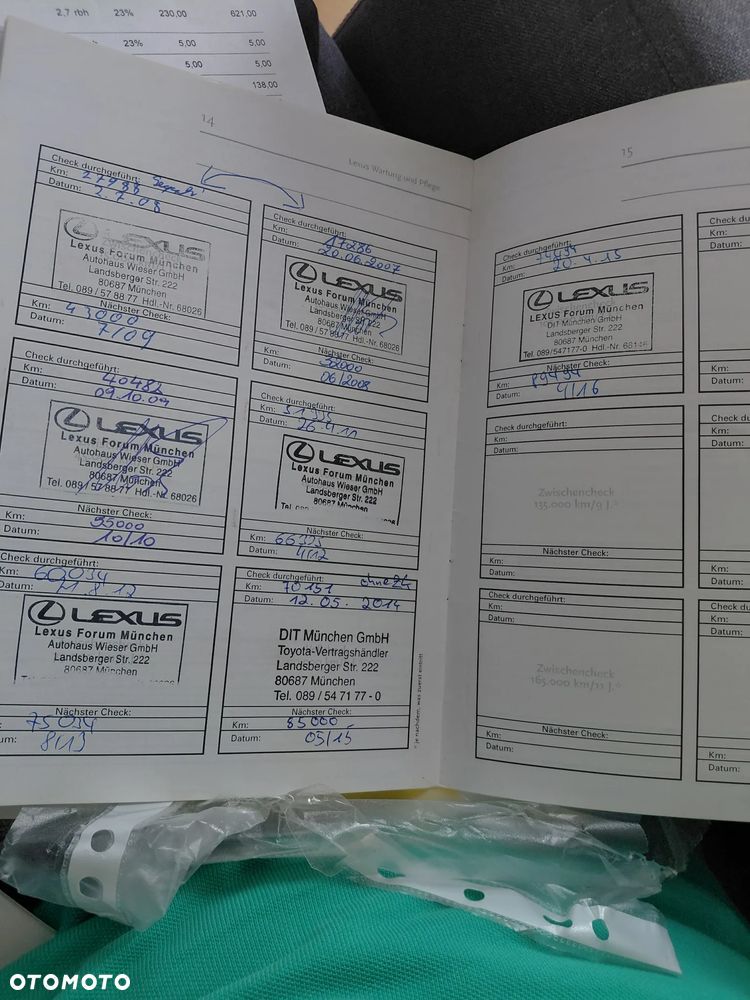 2,7 rbh 23% 230,00 621,00
23% 5,00 5,00
5,00 5,00
138,00
14
Lexus Wartung und Pflege
Check durchgeführt:
Km: 27988
Datum: 2.7.08
LEXUS
Lexus Forum München
Autohaus Wieser GmbH
Landsberger Str. 222
80687 München
Tel. 089 / 57 88 77 Hdl.-Nr. 68026
Nächster Check:
Km: 43000
Datum: 7/09
Check durchgeführt:
Km: 17286
Datum: 20.06.2007
LEXUS
Lexus Forum München
Autohaus Wieser GmbH
Landsberger Str. 222
80687 München
Tel. 089 / 57 88 77 Hdl.-Nr. 68026
Nächster Check:
Km: 32000
Datum: 06/2008
Check durchgeführt:
Km: 40482
Datum: 09.10.09
LEXUS
Lexus Forum München
Autohaus Wieser GmbH
Landsberger Str. 222
80687 München
Tel. 089 / 57 88 77 Hdl.-Nr. 68026
Nächster Check:
Km: 55000
Datum: 10/10
Check durchgeführt:
Km: 51335
Datum: 26.4.11
LEXUS
Lexus Forum München
Autohaus Wieser GmbH
Landsberger Str. 222
80687 München
Nächster Check:
Km: 66335
Datum: 4/12
Check durchgeführt:
Km: 60034
Datum: 11.8.12
LEXUS
Lexus Forum München
Autohaus Wieser GmbH
Landsberger Str. 222
80687 München
Nächster Check:
Km: 75034
um: 8/13
Check durchgeführt: ohne
Km: 70151
Datum: 12.05.2014
DIT München GmbH
Toyota-Vertragshändler
Landsberger Str. 222
80687 München
Tel. 089 / 54 71 77 - 0
Nächster Check:
Km: 85000
Datum: 05/15
* je nachdem, was zuerst eintritt
15
Check durchgeführt:
Km: 74494
Datum: 20.4.15
LEXUS
Lexus Forum München
DIT München GmbH
Landsberger Str. 222
80687 München
Tel. 089/547177-0 Hdl.-Nr. 68146
Nächster Check:
Km: 89494
Datum: 4/16
Check durchgeführt:
Km:
Datum:
Zwischencheck
135.000 km/9 J.*
Nächster Check:
Km:
Datum:
Check durchgeführt:
Km:
Datum:
Zwischencheck
165.000 km/11 J.*
Nächster Check:
Km:
Datum:
Check du
Km:
Datum:
Km:
Datum:
Check du
Km:
Datum:
Km:
Datum:
Check du
Km:
Datum:
Km:
Datum:
OTOMOTO